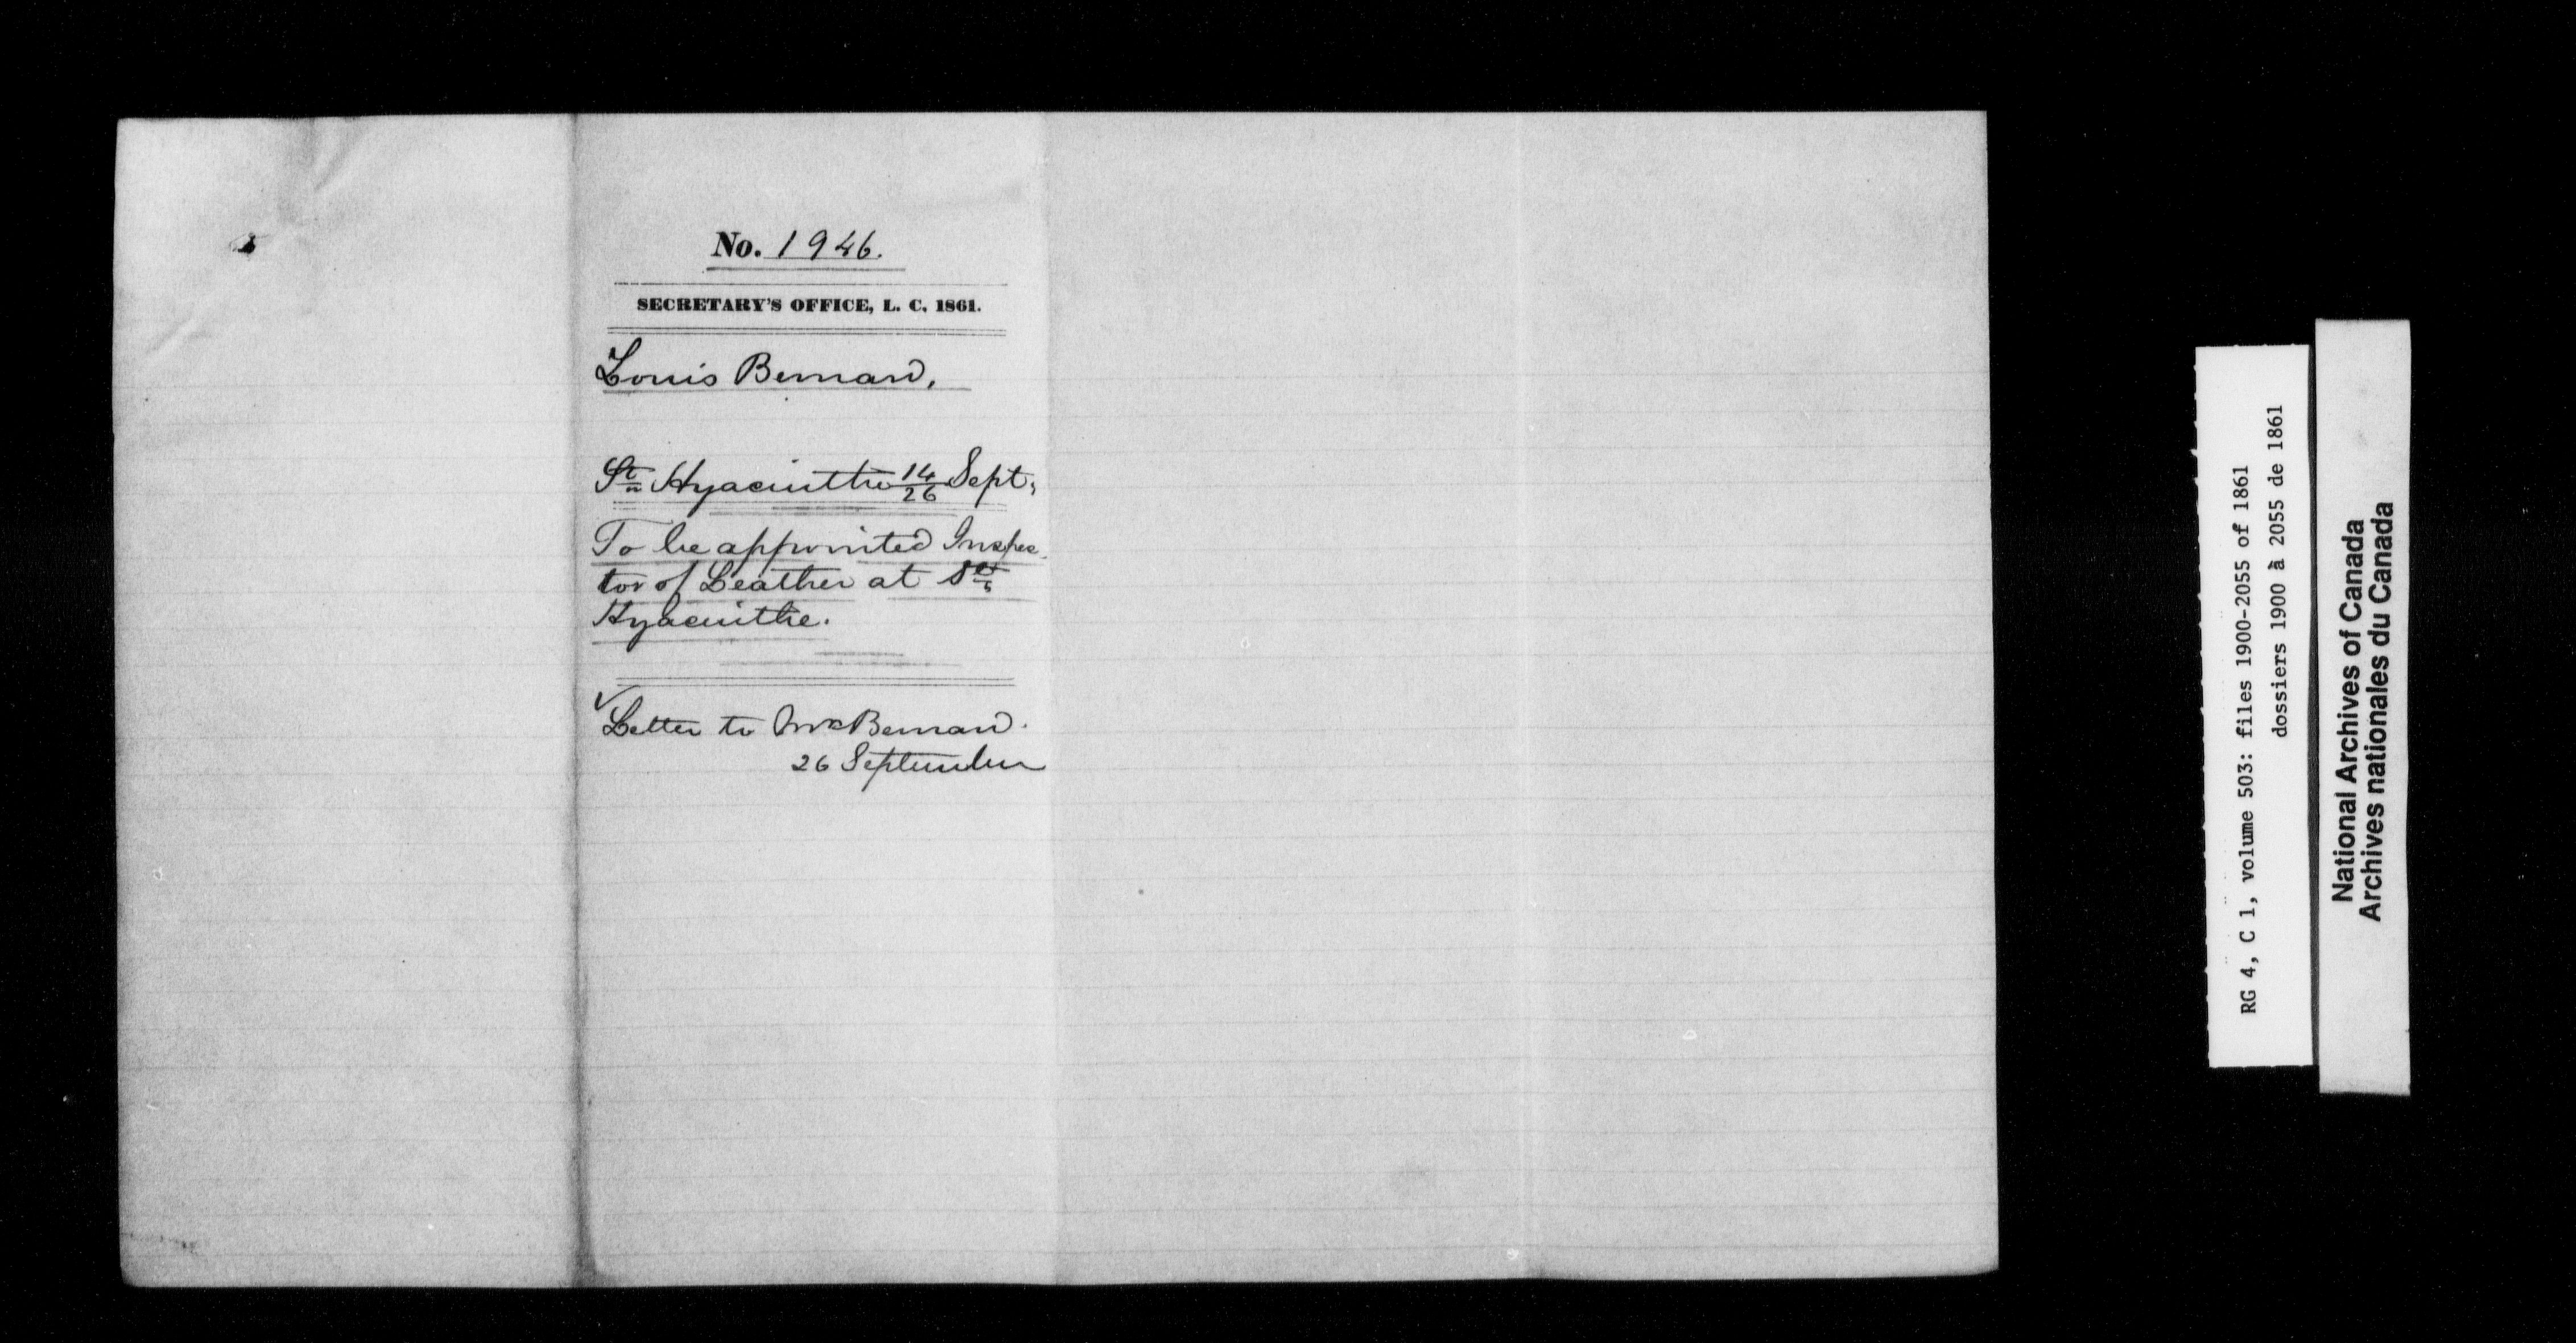 No. 1946.
SECRETARY'S OFFICE, L. C. 1861.
Louis Bernard,
St Hyacinthe 14/26 Sept.
To be appointed Inspec
tor of Leather at St
Hyacinthe.
✓ Letter to Mr Bernard.
26 September
RG 4, C 1, volume 503: files 1900-2055 of 1861
dossiers 1900 à 2055 de 1861
National Archives of Canada
Archives nationales du Canada